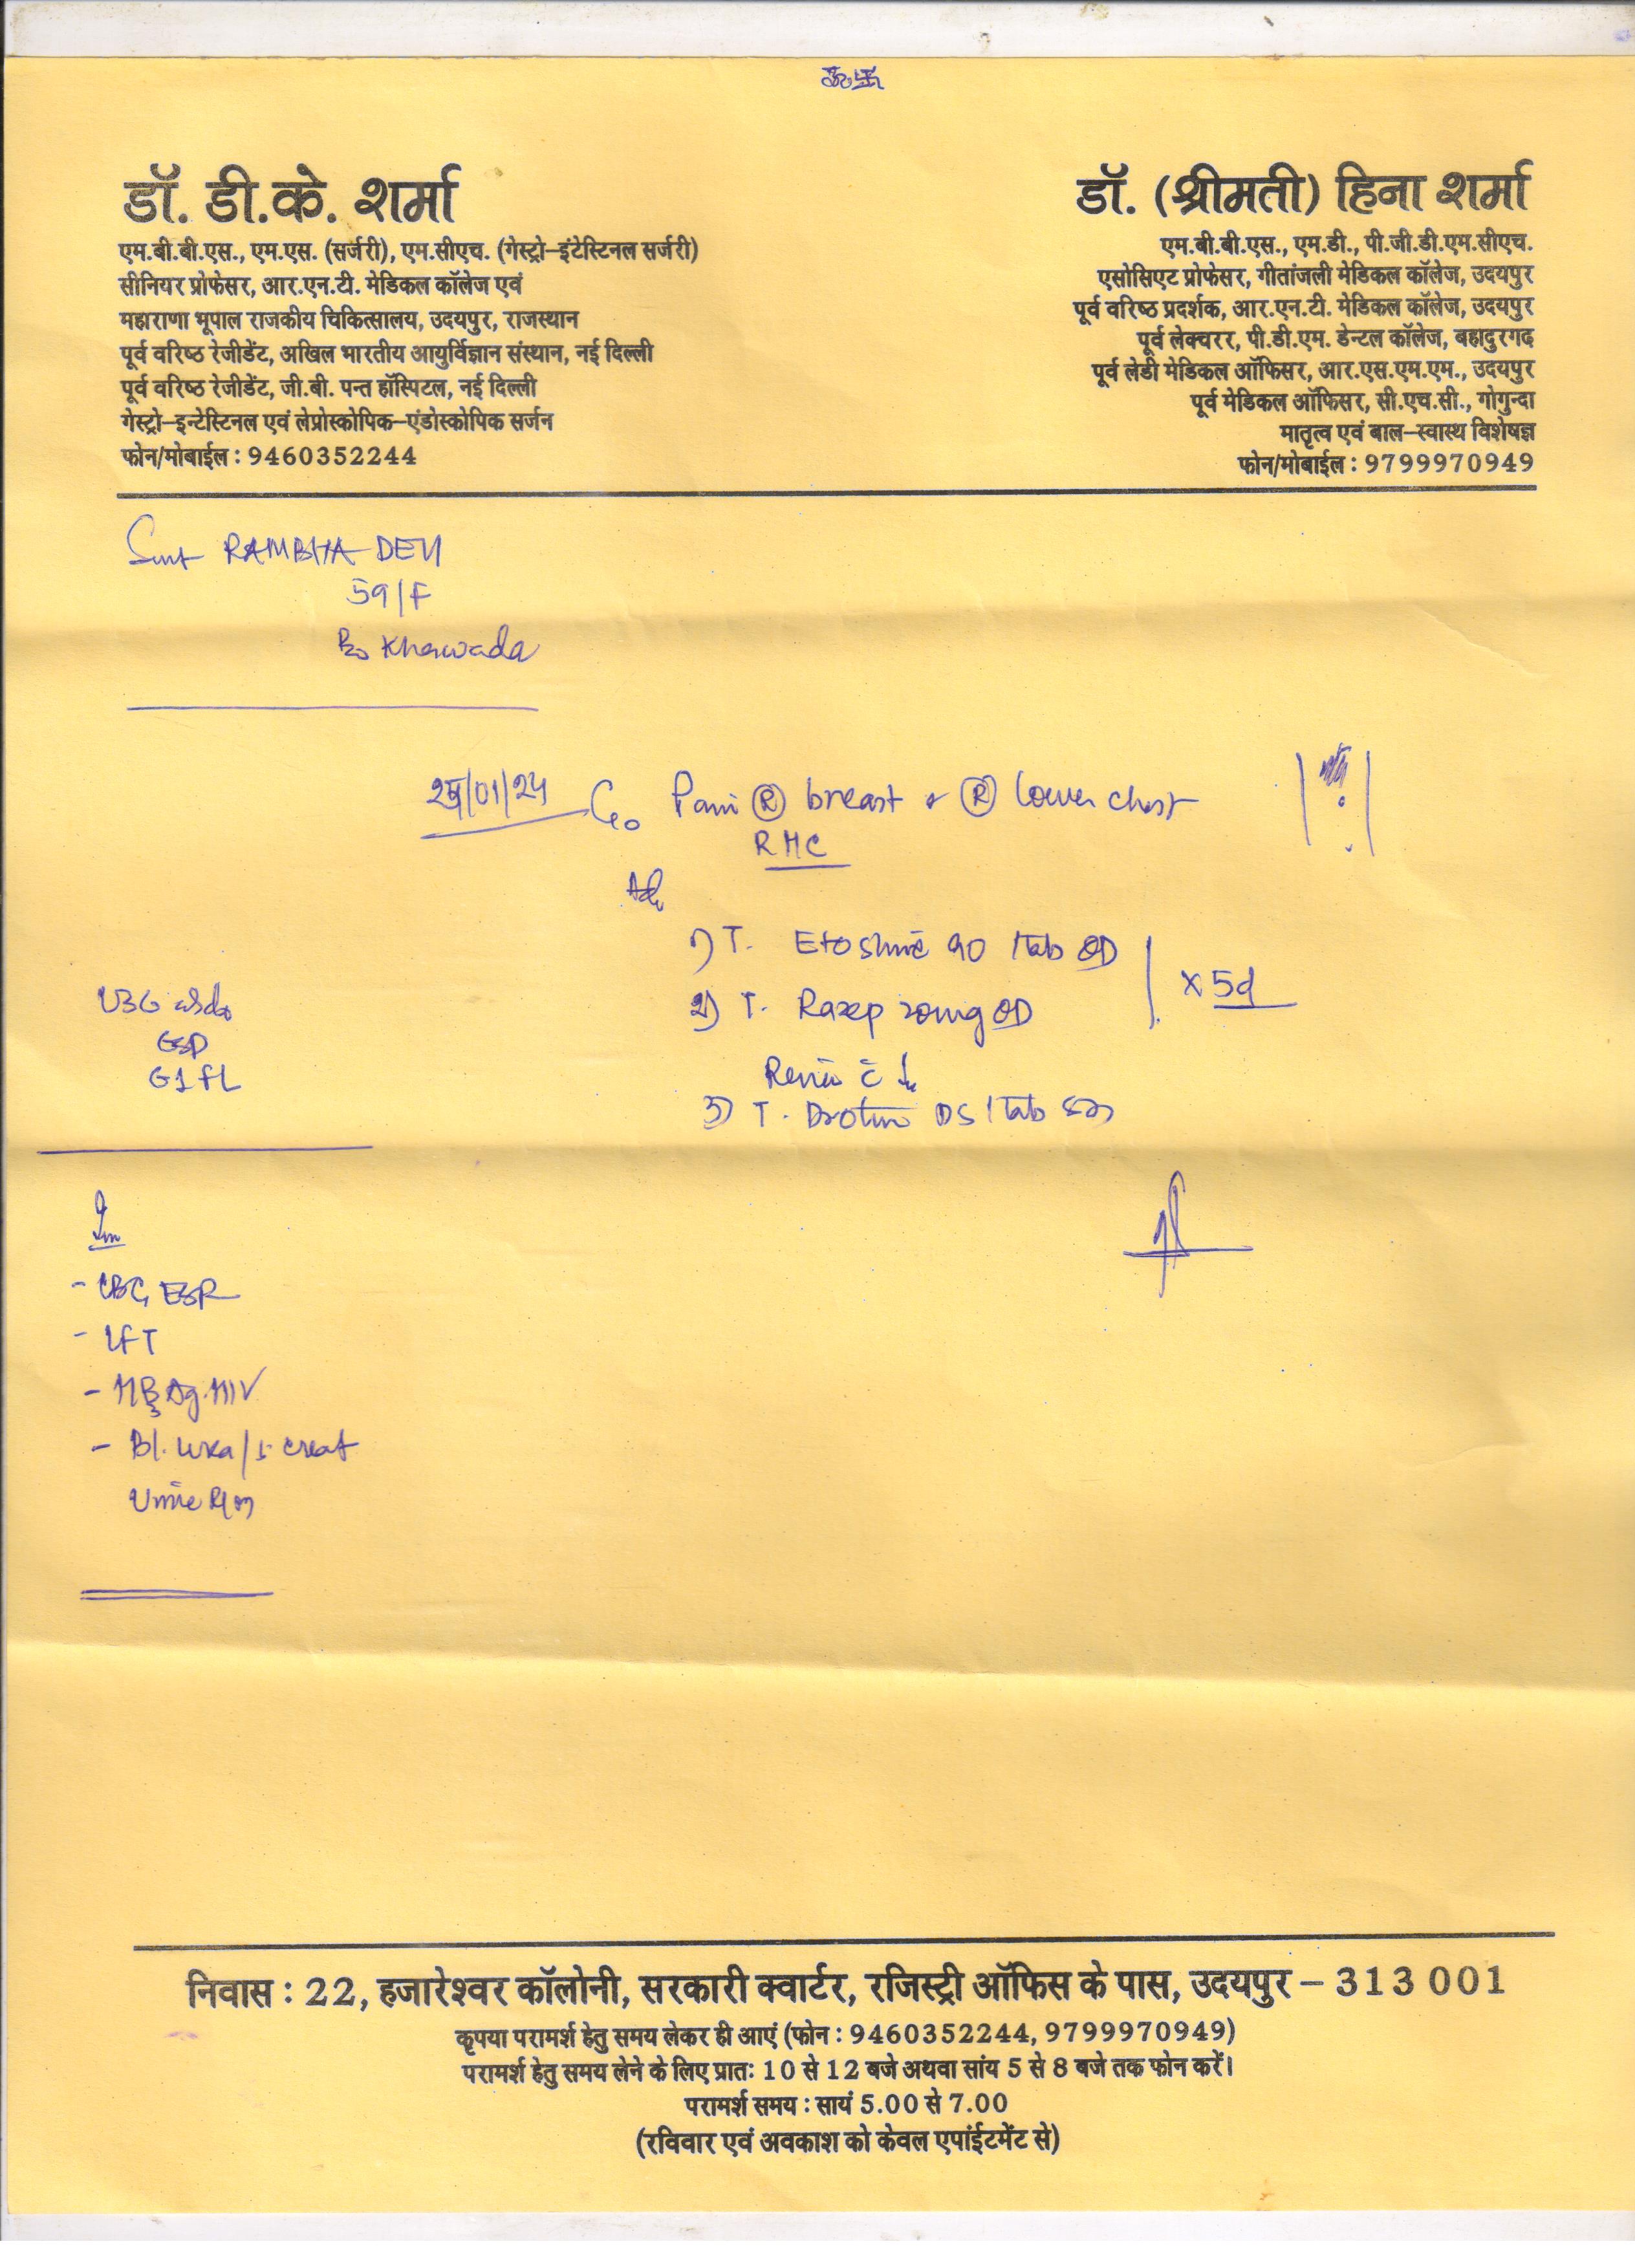 डॉ. डी.के. शर्मा
एम.बी.बी.एस., एम.एस. (सर्जरी), एम.सीएच. (गेस्ट्रो-इंटेस्टिनल सर्जरी)
सीनियर प्रोफेसर, आर.एन.टी. मेडिकल कॉलेज एवं
महाराणा भूपाल राजकीय चिकित्सालय, उदयपुर, राजस्थान
पूर्व वरिष्ठ रेजीडेंट, अखिल भारतीय आयुर्विज्ञान संस्थान, नई दिल्ली
पूर्व वरिष्ठ रेजीडेंट, जी.बी. पन्त हॉस्पिटल, नई दिल्ली
गेस्ट्रो-इन्टेस्टिनल एवं लेप्रोस्कोपिक-एंडोस्कोपिक सर्जन
फोन/मोबाईल : 9460352244
डॉ. (श्रीमती) हिना शर्मा
एम.बी.बी.एस., एम.डी., पी.जी.डी.एम.सीएच.
एसोसिएट प्रोफेसर, गीतांजली मेडिकल कॉलेज, उदयपुर
पूर्व वरिष्ठ प्रदर्शक, आर.एन.टी. मेडिकल कॉलेज, उदयपुर
पूर्व लेक्चरर, पी.डी.एम. डेन्टल कॉलेज, बहादुरगढ
पूर्व लेडी मेडिकल ऑफिसर, आर.एस.एम.एम., उदयपुर
पूर्व मेडिकल ऑफिसर, सी.एच.सी., गोगुन्दा
मातृत्व एवं बाल-स्वास्थ विशेषज्ञ
फोन/मोबाईल : 9799970949
Smt RAMBHA DEVI
59/F
R/o Kherwada
/01/24 C/o Pain Ⓡ breast & Ⓡ lower chest
RHC
Adv
1) T. Etoshine 90 1 tab OD
2) T. Razep 20mg OD
x 5d
3) T. Drotin DS 1 tab SOS
USG
GSD
G1 FL
Inv
- CBC, ESR
- LFT
- HBsAg. HIV
- Bl. urea / s. creat
Urine R/m
निवास : 22, हजारेश्वर कॉलोनी, सरकारी क्वार्टर, रजिस्ट्री ऑफिस के पास, उदयपुर – 313 001
कृपया परामर्श हेतु समय लेकर ही आएं (फोन : 9460352244, 9799970949)
परामर्श हेतु समय लेने के लिए प्रातः 10 से 12 बजे अथवा सांय 5 से 8 बजे तक फोन करें।
परामर्श समय : सायं 5.00 से 7.00
(रविवार एवं अवकाश को केवल एपांईटमेंट से)